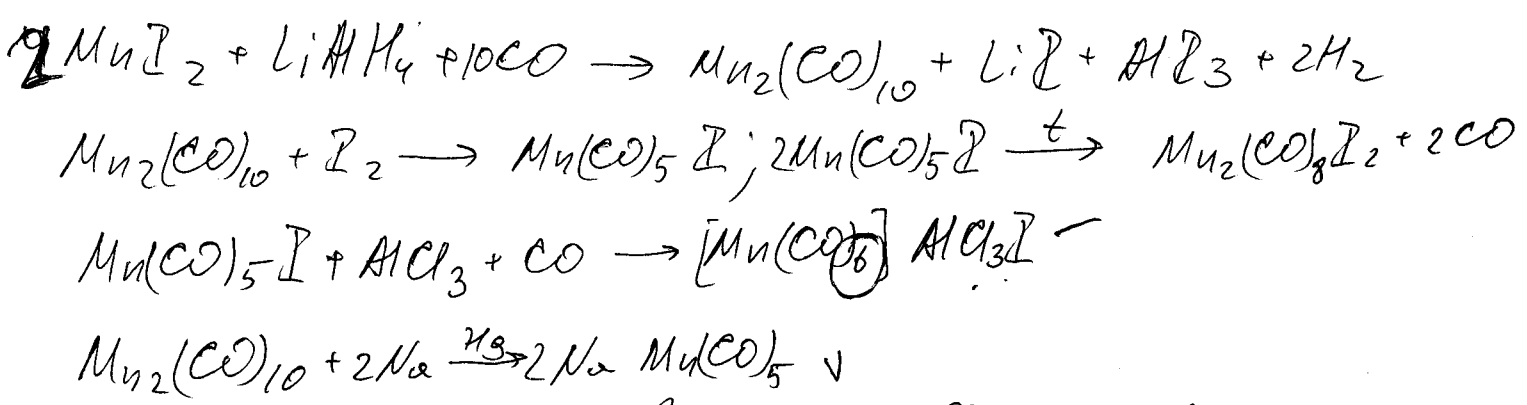 2MnI₂ + LiAlH₄ + 10CO → Mn₂(CO)₁₀ + LiI + AlI₃ + 2H₂
Mn₂(CO)₁₀ + I₂ → Mn(CO)₅I; 2Mn(CO)₅I →ᵗ Mn₂(CO)₈I₂ + 2CO
Mn(CO)₅I + AlCl₃ + CO → [Mn(CO)₆] AlCl₃I –
Mn₂(CO)₁₀ + 2Na →ᴴᵍ 2Na Mn(CO)₅ v